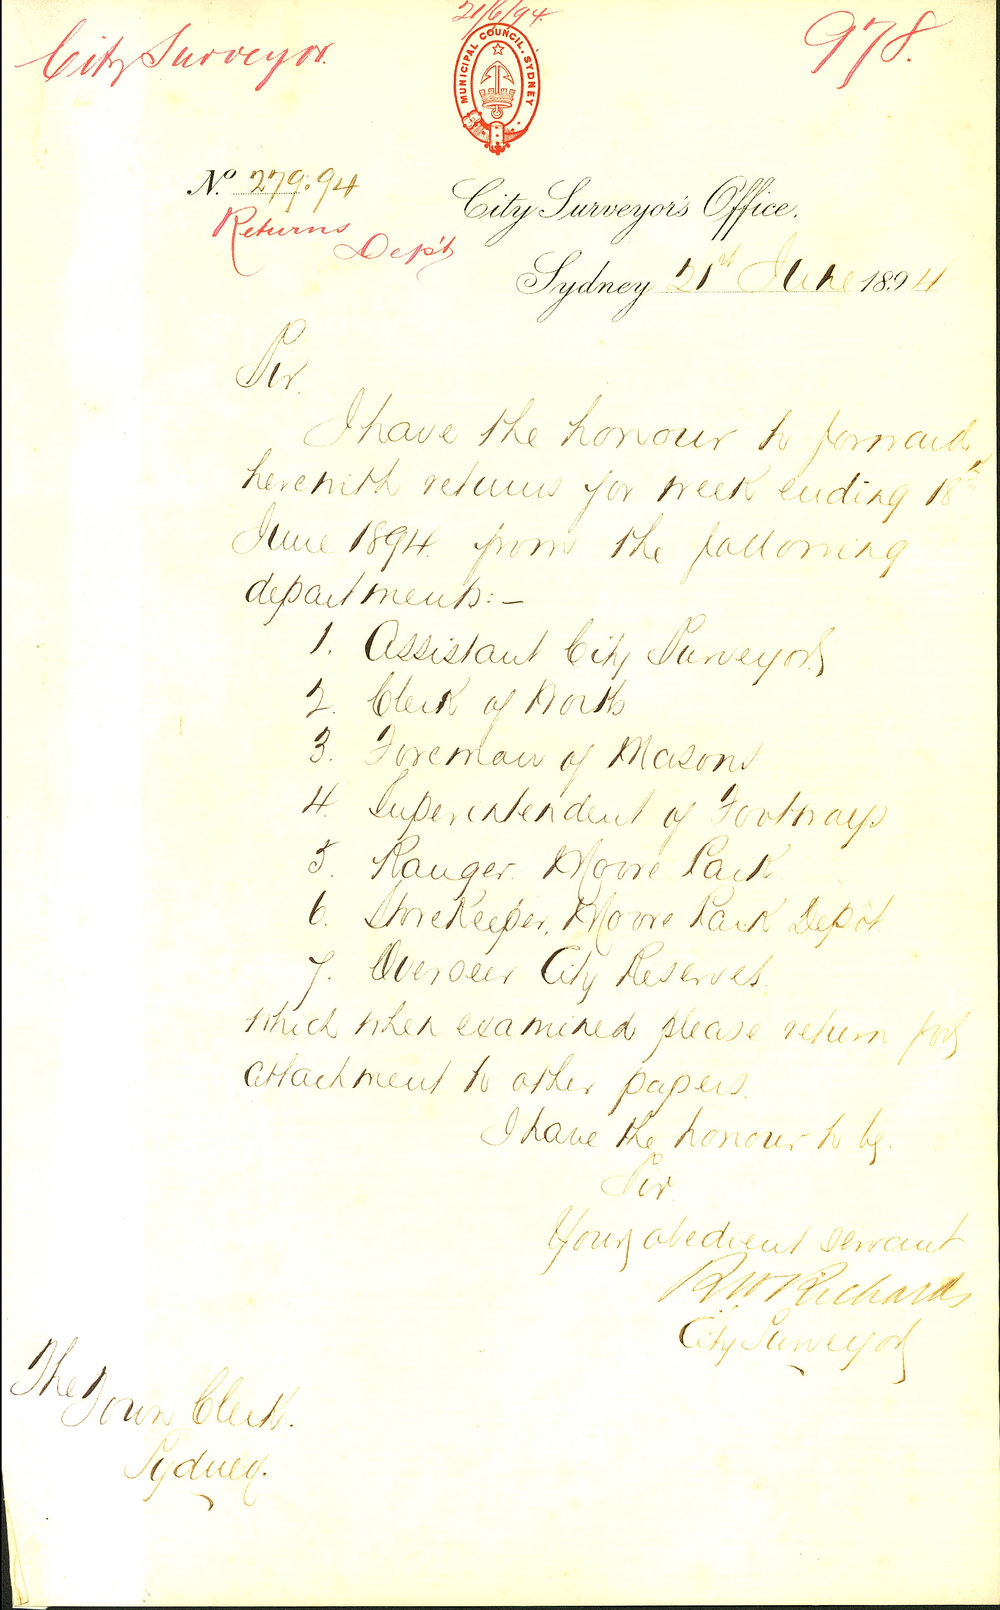 21/6/94.
City Surveyor.
978.
MUNICIPAL COUNCIL. SYDNEY
No. 279.94
City Surveyor's Office.
Returns
Dep't
Sydney 21st June 1894
Sir.
I have the honour to forward
herewith returns for week ending 18th
June 1894. from the following
departments:-
1. Assistant City Surveyor
2. Clerk of Works
3. Foreman of Masons
4. Superintendent of Footways
5. Ranger. Moore Park
6. Storekeeper, Moore Park Depôt
7. Overseer City Reserves.
which when examined please return for
attachment to other papers.
I have the honour to be.
Sir.
Your obedient servant
R W Richards
City Surveyor
The Town Clerk.
Sydney.